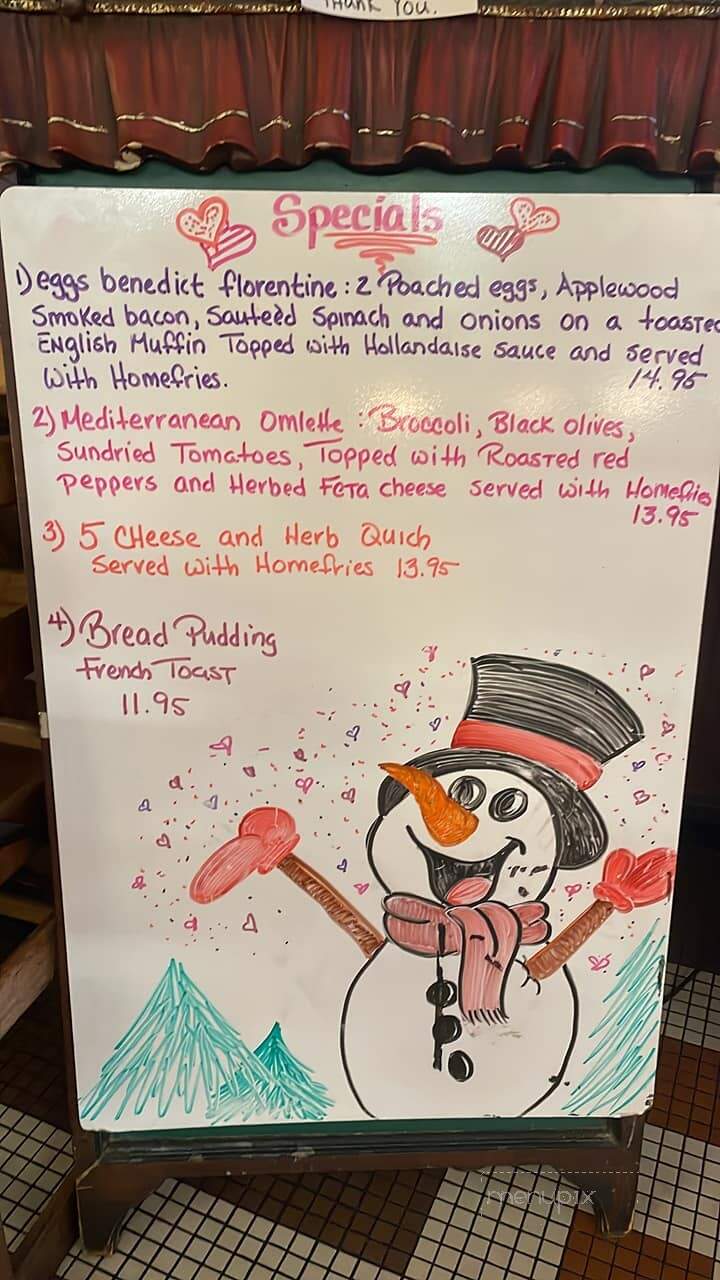 THANK YOU.
Specials
1) eggs benedict florentine: 2 Poached eggs, Applewood
Smoked bacon, Sauteèd Spinach and onions on a toasted
English Muffin Topped with Hollandaise sauce and served
with Homefries. 14.95
2) Mediterranean Omlette: Broccoli, Black olives,
Sundried Tomatoes, Topped with Roasted red
peppers and Herbed Feta cheese served with Homefries
13.95
3) 5 Cheese and Herb Quich
Served with Homefries 13.95
4) Bread Pudding
French Toast
11.95
menupix